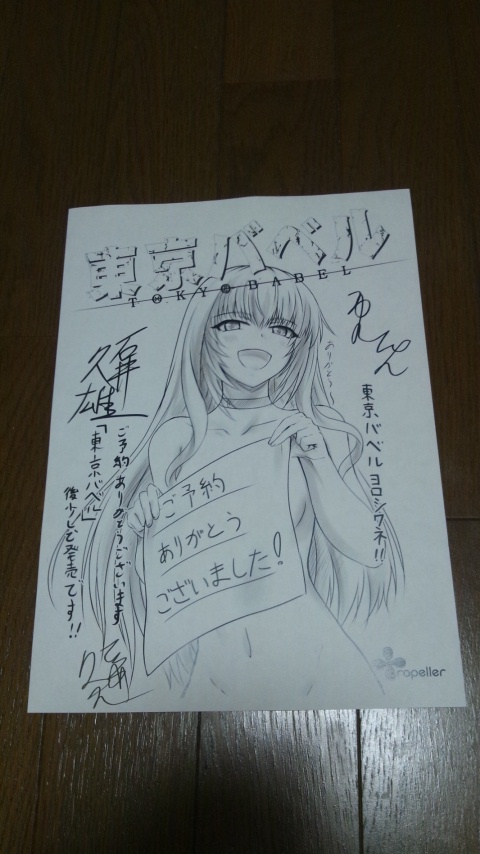 東京バベル
TOKYO BABEL
ありがとう
東京バベル ヨロシクネ!!
石井久雄
ご予約ありがとうございます
「東京バベル」
後少しで発売です!!
ご予約
ありがとう
ございました!
propeller